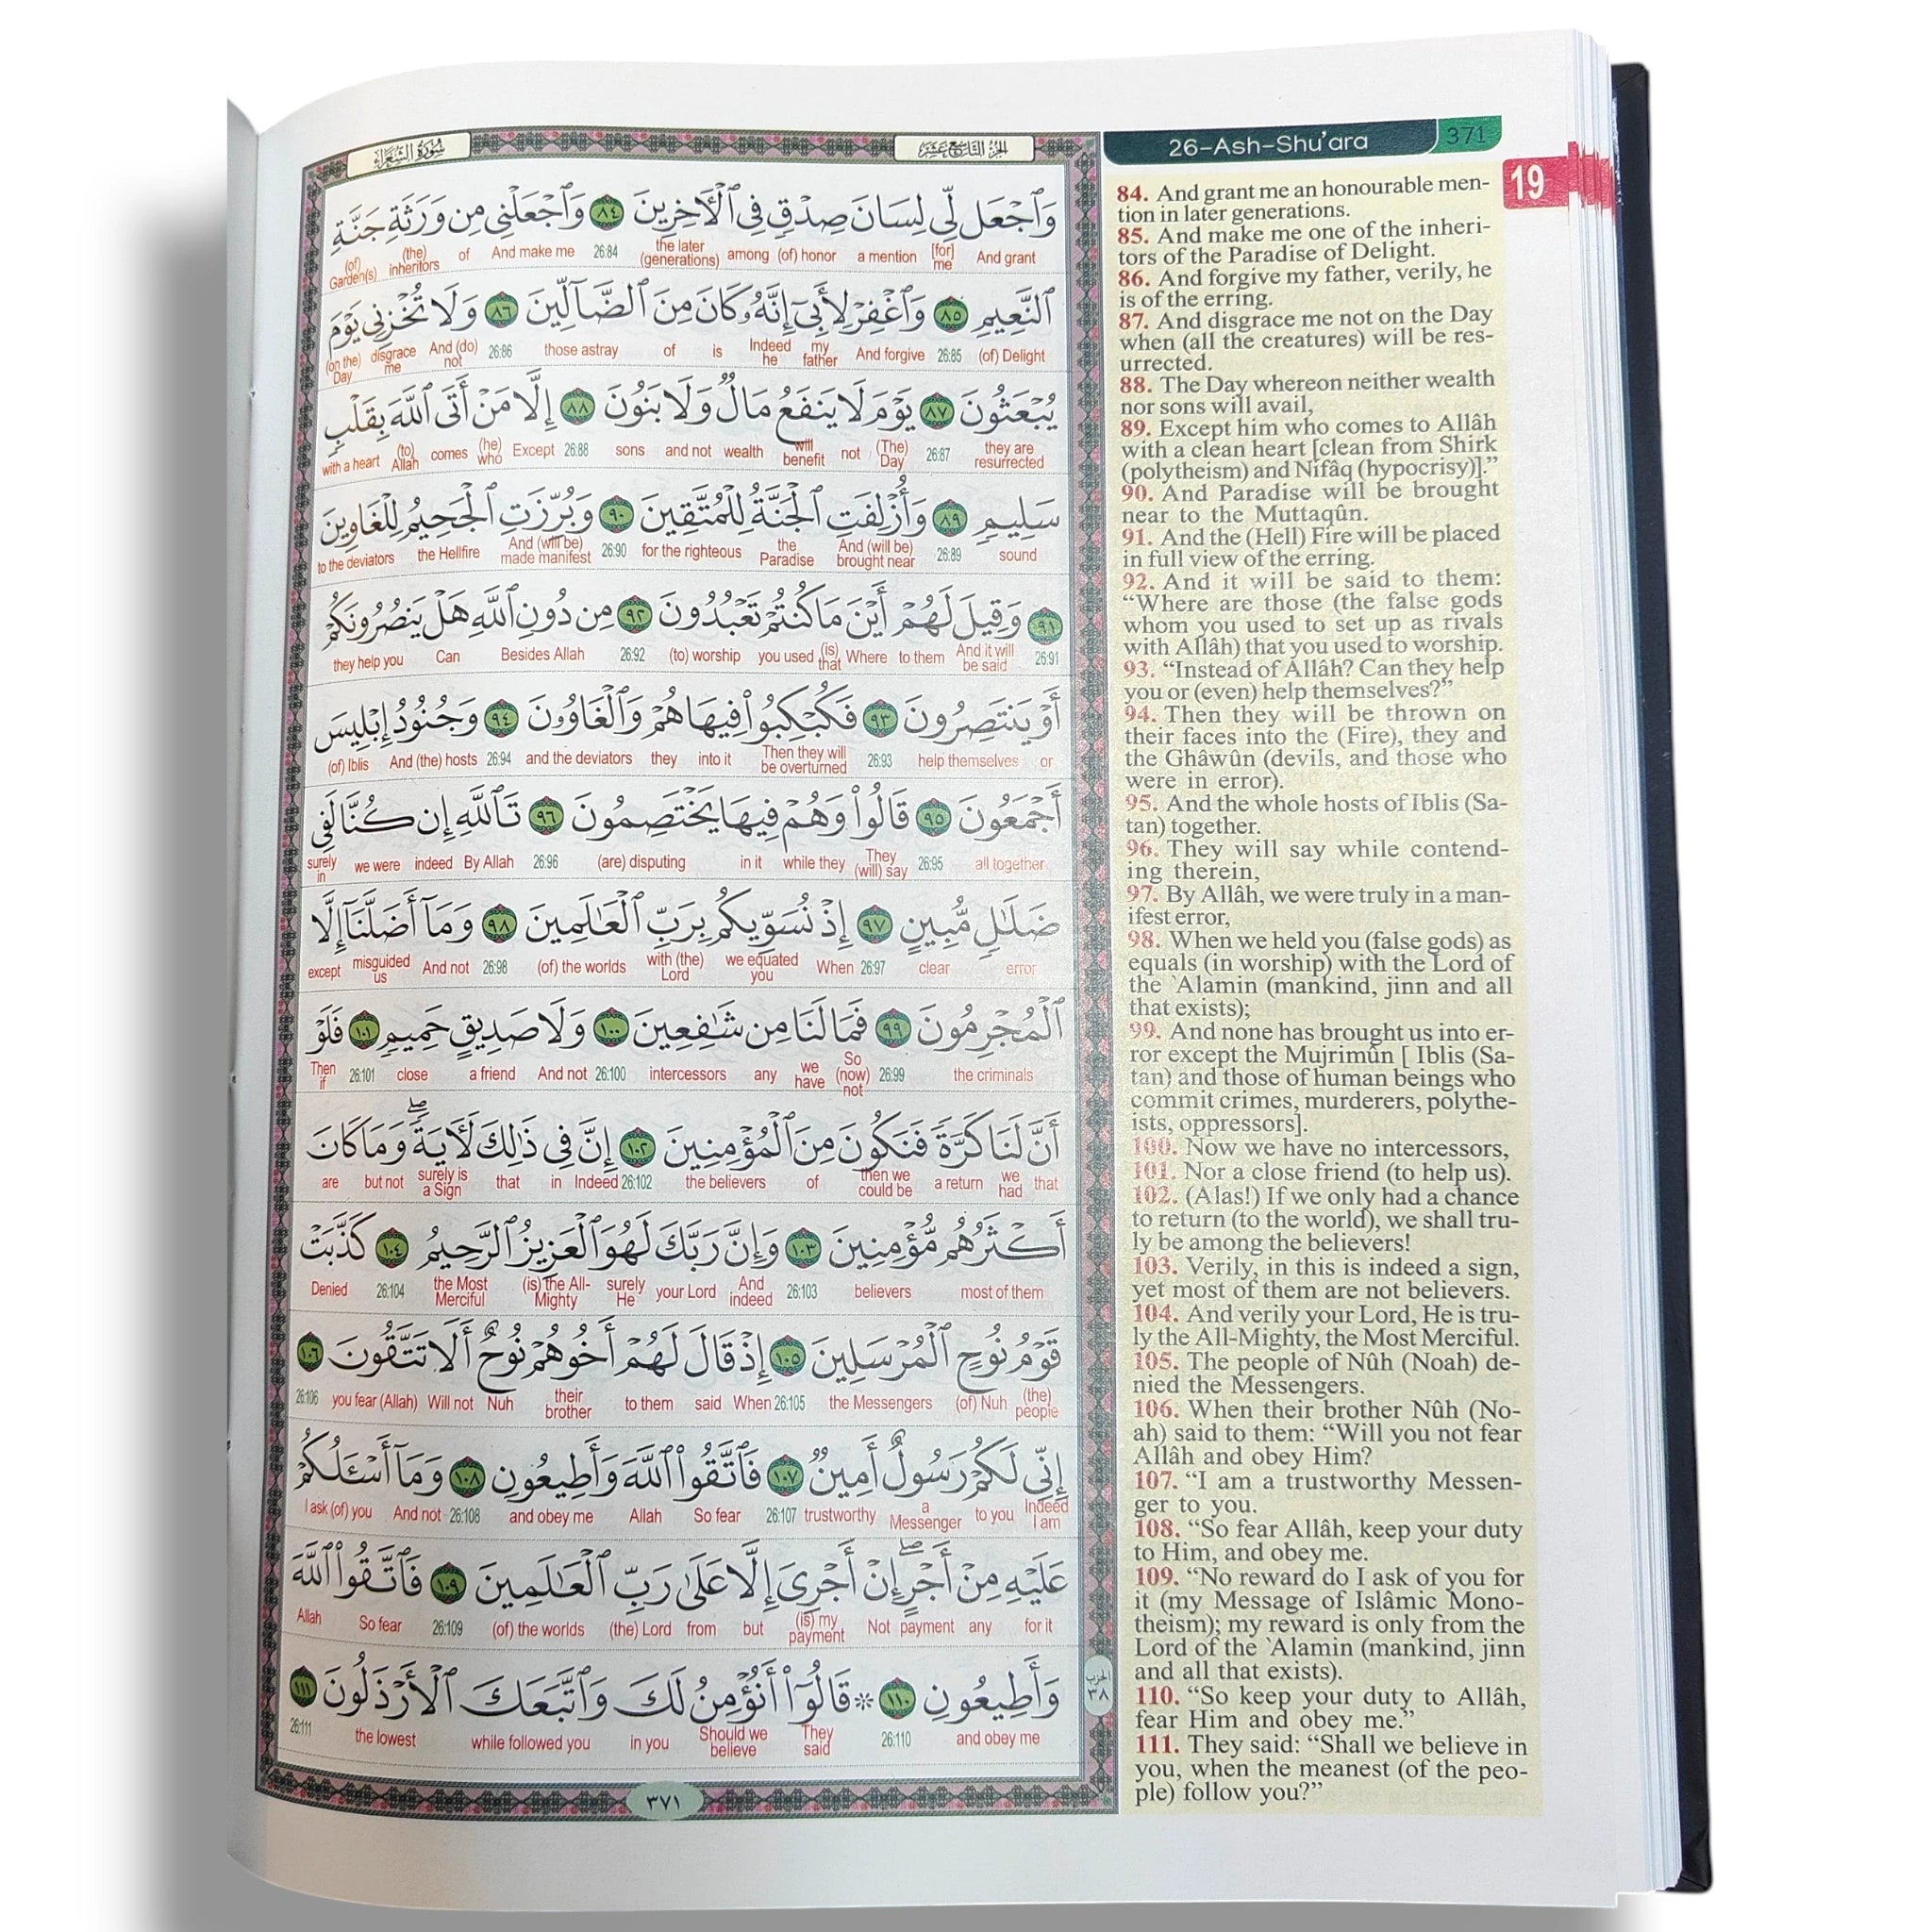 سورة الشعراء
الجزء التاسع عشر
26-Ash-Shu’ara
371
19
وَٱجۡعَل لِّي لِسَانَ صِدۡقٖ فِي ٱلۡأٓخِرِينَ ٨٤ وَٱجۡعَلۡنِي مِن وَرَثَةِ جَنَّةِ
And grant [for] me a mention (of) honor among the later (generations) 26:84 And make me of (the) inheritors (of) Garden(s)
ٱلنَّعِيمِ ٨٥ وَٱغۡفِرۡ لِأَبِيٓ إِنَّهُۥ كَانَ مِنَ ٱلضَّآلِّينَ ٨٦ وَلَا تُخۡزِنِي يَوۡمَ
(of) Delight 26:85 And forgive my father Indeed he is of those astray 26:86 And (do) not disgrace me (on the) Day
يُبۡعَثُونَ ٨٧ يَوۡمَ لَا يَنفَعُ مَالٞ وَلَا بَنُونَ ٨٨ إِلَّا مَنۡ أَتَى ٱللَّهَ بِقَلۡبٖ
they are resurrected 26:87 (The) Day not will benefit wealth and not sons 26:88 Except (he) who comes (to) Allah with a heart
سَلِيمٖ ٨٩ وَأُزۡلِفَتِ ٱلۡجَنَّةُ لِلۡمُتَّقِينَ ٩٠ وَبُرِّزَتِ ٱلۡجَحِيمُ لِلۡغَاوِينَ
sound 26:89 And (will be) brought near the Paradise for the righteous 26:90 And (will be) made manifest the Hellfire to the deviators
٩١ وَقِيلَ لَهُمۡ أَيۡنَ مَا كُنتُمۡ تَعۡبُدُونَ ٩٢ مِن دُونِ ٱللَّهِ هَلۡ يَنصُرُونَكُمۡ
26:91 And it will be said to them Where (is) that you used (to) worship 26:92 Besides Allah Can they help you
أَوۡ يَنتَصِرُونَ ٩٣ فَكُبۡكِبُواْ فِيهَا هُمۡ وَٱلۡغَاوُۥنَ ٩٤ وَجُنُودُ إِبۡلِيسَ
or help themselves 26:93 Then they will be overturned into it they and the deviators 26:94 And (the) hosts (of) Iblis
أَجۡمَعُونَ ٩٥ قَالُواْ وَهُمۡ فِيهَا يَخۡتَصِمُونَ ٩٦ تَٱللَّهِ إِن كُنَّا لَفِي
all together 26:95 They (will) say while they in it (are) disputing 26:96 By Allah indeed we were surely in
ضَلَٰلٖ مُّبِينٍ ٩٧ إِذۡ نُسَوِّيكُم بِرَبِّ ٱلۡعَٰلَمِينَ ٩٨ وَمَآ أَضَلَّنَآ إِلَّا
error clear 26:97 When we equated you with (the) Lord (of) the worlds 26:98 And not misguided us except
ٱلۡمُجۡرِمُونَ ٩٩ فَمَا لَنَا مِن شَٰفِعِينَ ١٠٠ وَلَا صَدِيقٍ حَمِيمٖ ١٠١ فَلَوۡ
the criminals 26:99 So (now) not we have any intercessors 26:100 And not a friend close 26:101 Then if
أَنَّ لَنَا كَرَّةٗ فَنَكُونَ مِنَ ٱلۡمُؤۡمِنِينَ ١٠٢ إِنَّ فِي ذَٰلِكَ لَأٓيَةٗۖ وَمَا كَانَ
that we had a return then we could be of the believers 26:102 Indeed in that surely is a Sign but not are
أَكۡثَرُهُم مُّؤۡمِنِينَ ١٠٣ وَإِنَّ رَبَّكَ لَهُوَ ٱلۡعَزِيزُ ٱلرَّحِيمُ ١٠٤ كَذَّبَتۡ
most of them believers 26:103 And indeed your Lord surely He (is) the All-Mighty the Most Merciful 26:104 Denied
قَوۡمُ نُوحٍ ٱلۡمُرۡسَلِينَ ١٠٥ إِذۡ قَالَ لَهُمۡ أَخُوهُمۡ نُوحٌ أَلَا تَتَّقُونَ ١٠٦
(the) people (of) Nuh the Messengers 26:105 When said to them their brother Nuh Will not you fear (Allah) 26:106
إِنِّي لَكُمۡ رَسُولٌ أَمِينٞ ١٠٧ فَٱتَّقُواْ ٱللَّهَ وَأَطِيعُونِ ١٠٨ وَمَآ أَسۡـَٔلُكُمۡ
Indeed I am to you a Messenger trustworthy 26:107 So fear Allah and obey me 26:108 And not I ask (of) you
عَلَيۡهِ مِنۡ أَجۡرٍۖ إِنۡ أَجۡرِيَ إِلَّا عَلَىٰ رَبِّ ٱلۡعَٰلَمِينَ ١٠٩ فَٱتَّقُواْ ٱللَّهَ
for it any payment Not (is) my payment but from (the) Lord (of) the worlds 26:109 So fear Allah
وَأَطِيعُونِ ١١٠ ۞ قَالُوٓاْ أَنُؤۡمِنُ لَكَ وَٱتَّبَعَكَ ٱلۡأَرۡذَلُونَ ١١١
and obey me 26:110 They said Should we believe in you while followed you the lowest 26:111
الحزب
٣٨
٣٧١
84. And grant me an honourable men-
tion in later generations.
85. And make me one of the inheri-
tors of the Paradise of Delight.
86. And forgive my father, verily, he
is of the erring.
87. And disgrace me not on the Day
when (all the creatures) will be res-
urrected.
88. The Day whereon neither wealth
nor sons will avail,
89. Except him who comes to Allâh
with a clean heart [clean from Shirk
(polytheism) and Nifâq (hypocrisy)].”
90. And Paradise will be brought
near to the Muttaqûn.
91. And the (Hell) Fire will be placed
in full view of the erring.
92. And it will be said to them:
“Where are those (the false gods
whom you used to set up as rivals
with Allâh) that you used to worship.
93. “Instead of Allâh? Can they help
you or (even) help themselves?”
94. Then they will be thrown on
their faces into the (Fire), they and
the Ghâwûn (devils, and those who
were in error).
95. And the whole hosts of Iblis (Sa-
tan) together.
96. They will say while contend-
ing therein,
97. By Allâh, we were truly in a man-
ifest error,
98. When we held you (false gods) as
equals (in worship) with the Lord of
the `Alamin (mankind, jinn and all
that exists);
99. And none has brought us into er-
ror except the Mujrimûn [ Iblis (Sa-
tan) and those of human beings who
commit crimes, murderers, polythe-
ists, oppressors].
100. Now we have no intercessors,
101. Nor a close friend (to help us).
102. (Alas!) If we only had a chance
to return (to the world), we shall tru-
ly be among the believers!
103. Verily, in this is indeed a sign,
yet most of them are not believers.
104. And verily your Lord, He is tru-
ly the All-Mighty, the Most Merciful.
105. The people of Nûh (Noah) de-
nied the Messengers.
106. When their brother Nûh (No-
ah) said to them: “Will you not fear
Allâh and obey Him?
107. “I am a trustworthy Messen-
ger to you.
108. “So fear Allâh, keep your duty
to Him, and obey me.
109. “No reward do I ask of you for
it (my Message of Islâmic Mono-
theism); my reward is only from the
Lord of the `Alamin (mankind, jinn
and all that exists).
110. “So keep your duty to Allâh,
fear Him and obey me.”
111. They said: “Shall we believe in
you, when the meanest (of the peo-
ple) follow you?”